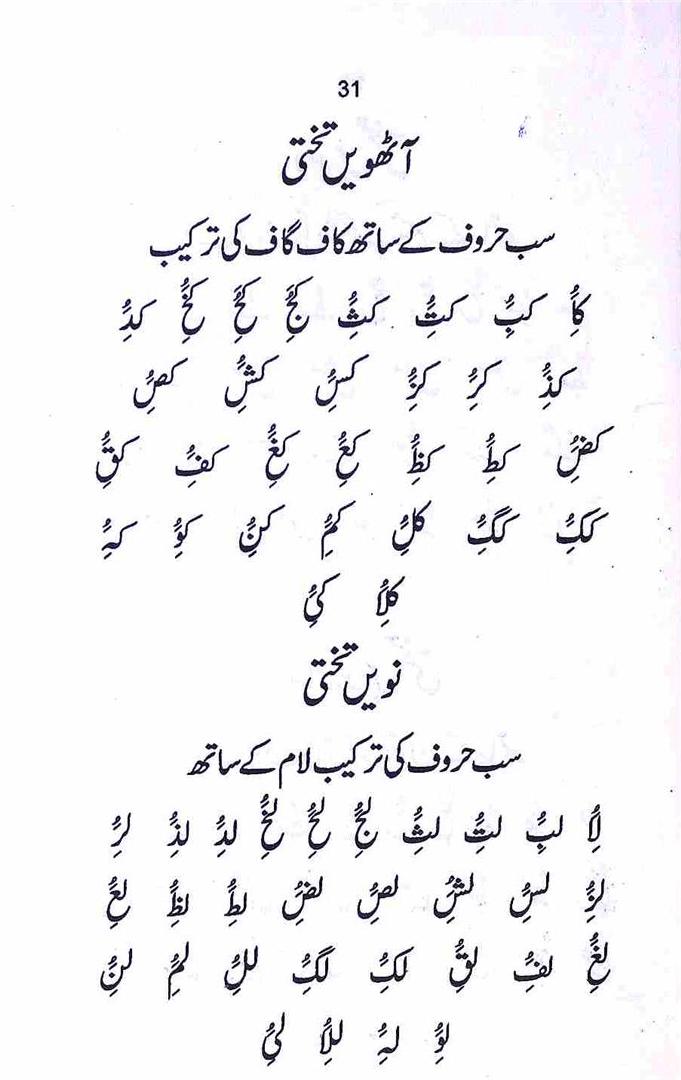 31
آٹھویں تختی
سب حروف کے ساتھ کاف گاف کی ترکیب
کاَُِ کبَُِ کتَُِ کثَُِ کجَُِ کحَُِ کخَُِ کدَُِ
کذَُِ کرَُِ کزَُِ کسَُِ کشَُِ کصَُِ
کضَُِ کطَُِ کظَُِ کعَُِ کغَُِ کفَُِ کقَُِ
ککَُِ کگَُِ کلَُِ کمَُِ کنَُِ کوَُِ کہَُِ
کلاَُِ کیَُِ
نویں تختی
سب حروف کی ترکیب لام کے ساتھ
لاَُِ لبَُِ لتَُِ لثَُِ لجَُِ لحَُِ لخَُِ لدَُِ لذَُِ لرَُِ
لزَُِ لسَُِ لشَُِ لصَُِ لضَُِ لطَُِ لظَُِ لعَُِ
لغَُِ لفَُِ لقَُِ لکَُِ لگَُِ للَُِ لمَُِ لنَُِ
لوَُِ لہَُِ للاَُِ لیَُِ